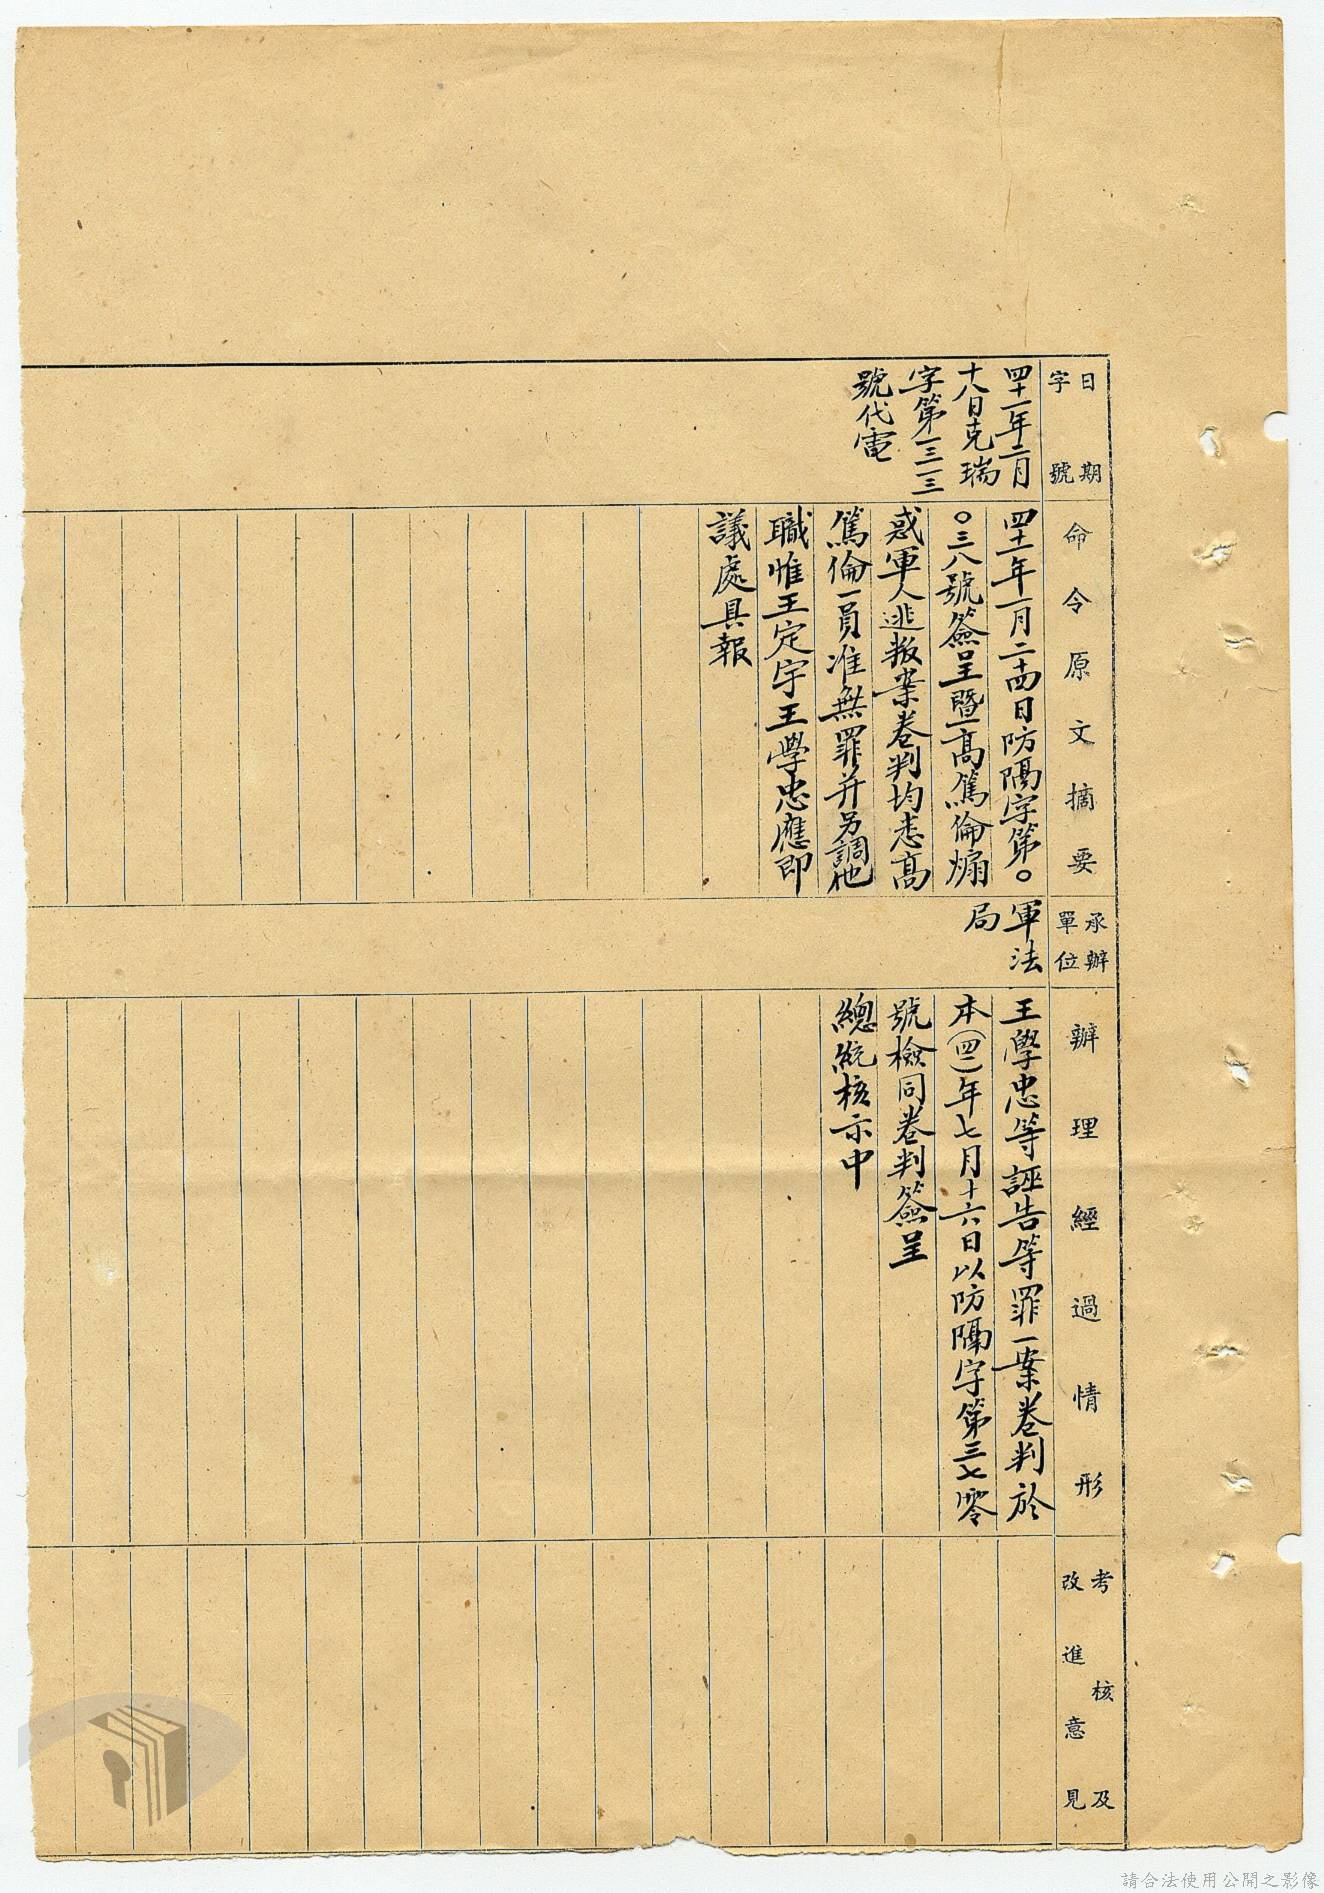 日期
字號
四十一年二月
十八日克瑞
字第一三一三
號代電
命令原文摘要
四十一年一月二十四日防隔字第〇
〇三八號簽呈暨高篤倫煽
惑軍人逃叛案卷判均悉高
篤倫一員准無罪并另調他
職惟王定宇王學忠應即
議處具報
承辦
單位
軍法
局
辦理經過情形
王學忠等誣告等罪一案卷判於
本(四二)年七月十六日以防隔字第三七零
號檢同卷判簽呈
總統核示中
考核及
改進意見
請合法使用公開之影像